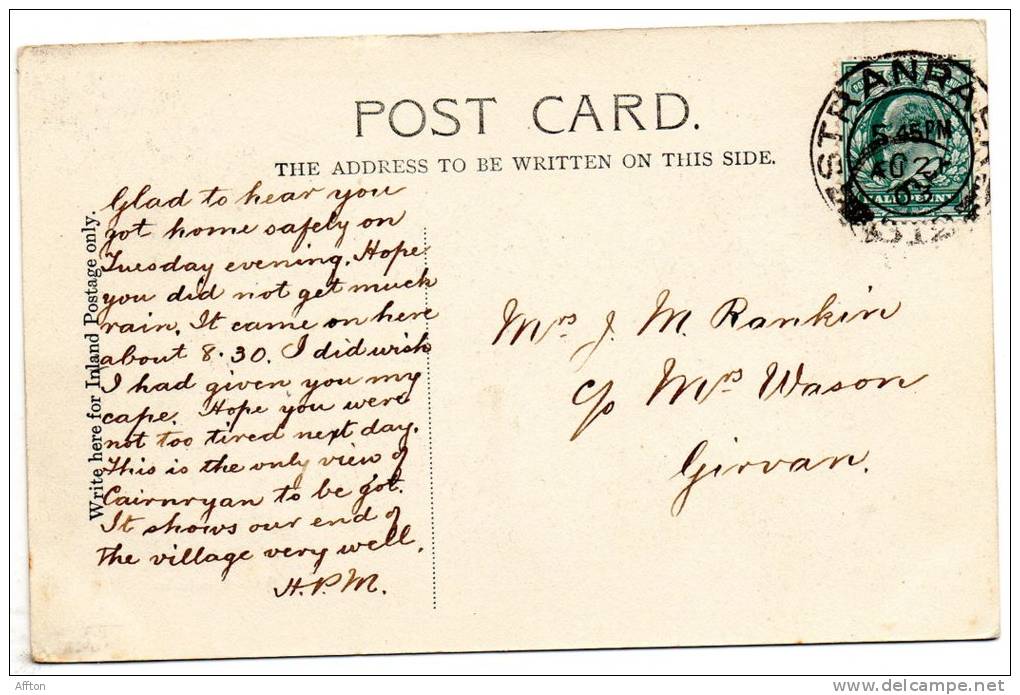 POST CARD.
THE ADDRESS TO BE WRITTEN ON THIS SIDE.
Write here for Inland Postage only.
Glad to hear you
got home safely on
Tuesday evening. Hope
you did not get much
rain. It came on here
about 8.30. I did wish
I had given you my
cape. Hope you were
not too tired next day.
This is the only view of
Cairnryan to be got.
It shows our end of
the village very well.
H.P.M.
Mrs J. M. Rankin
c/o Mrs Wason
Girvan.
STRANRAER
5.45 PM
HALFPENNY
Affton
http://www.delcampe.net